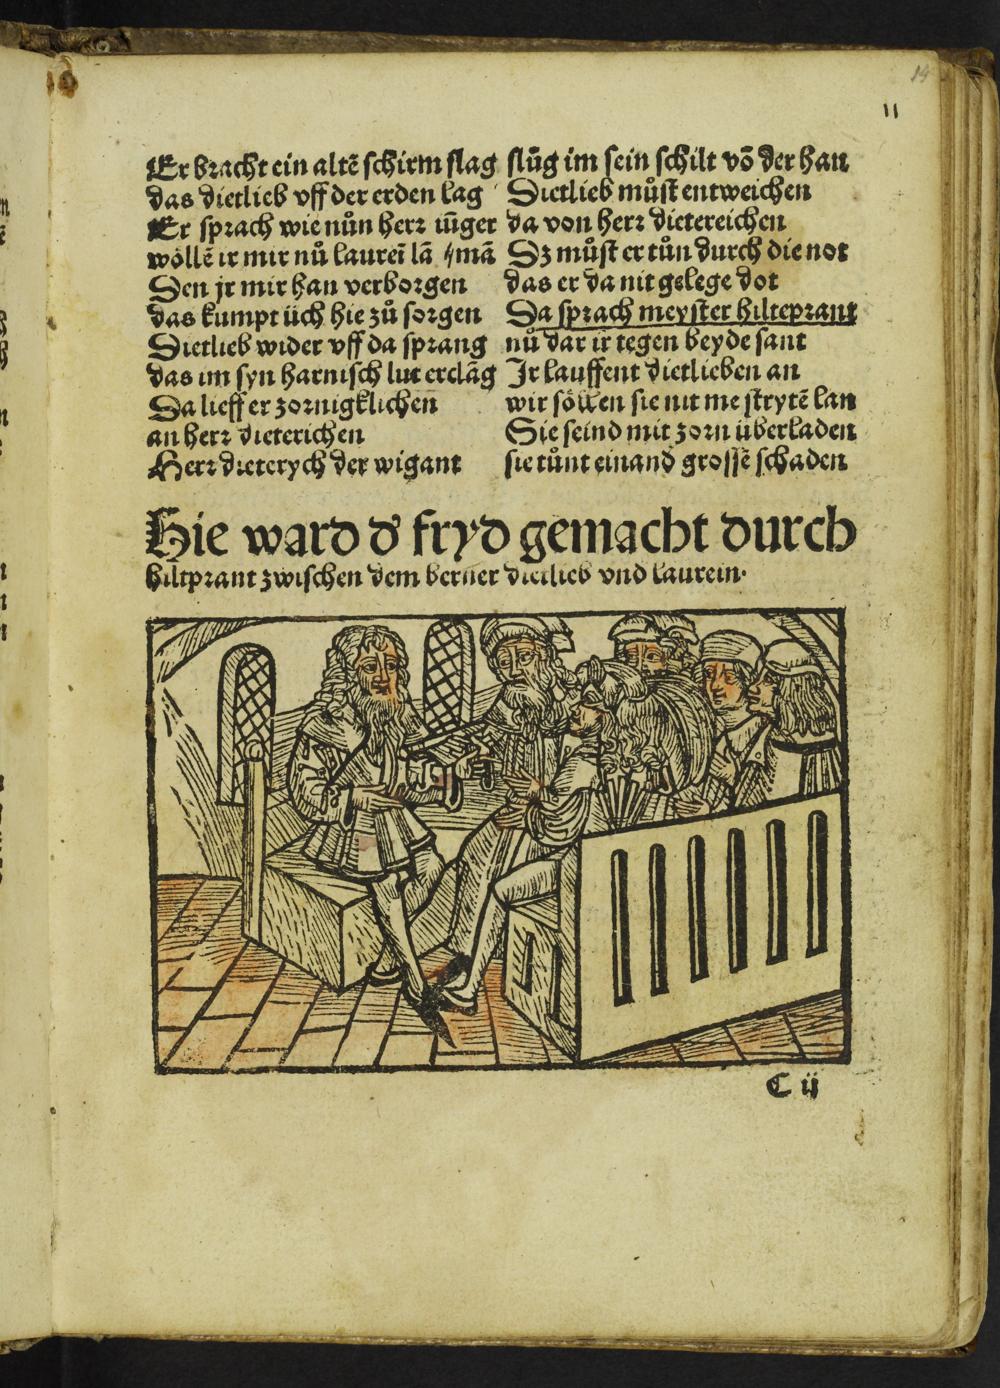 19
11
Er bracht ein altē schirm slag
das dietlieb vff der erden lag
Er sprach wie nůn herꝛ iūger
wöllē ir mir nů laureī lā /mā
Den jr mir han verborgen
das kumpt üch hie zů sorgen
Dietlieb wider vff da sprang
das im syn harnisch lut erclāg
Da lieff er zornigklichen
an herꝛ dieterichen
Herꝛ dieterych der wigant
slůg im sein schilt vō der han
Dietlieb můst entweichen
da von herꝛ dietereichen
Dz můst er tůn durch die not
das er da nit gelege dot
Da sprach meyster hilteprant
nů dar ir tegen beyde sant
Ir lauffent dietlieben an
wir söllen sie nit me strytē lan
Sie seind mit zorn überladen
sie tůnt einand grossē schaden
Hie ward d' fryd gemacht durch
hiltprant zwischen dem berner dietlieb vnd laurein.
C ij